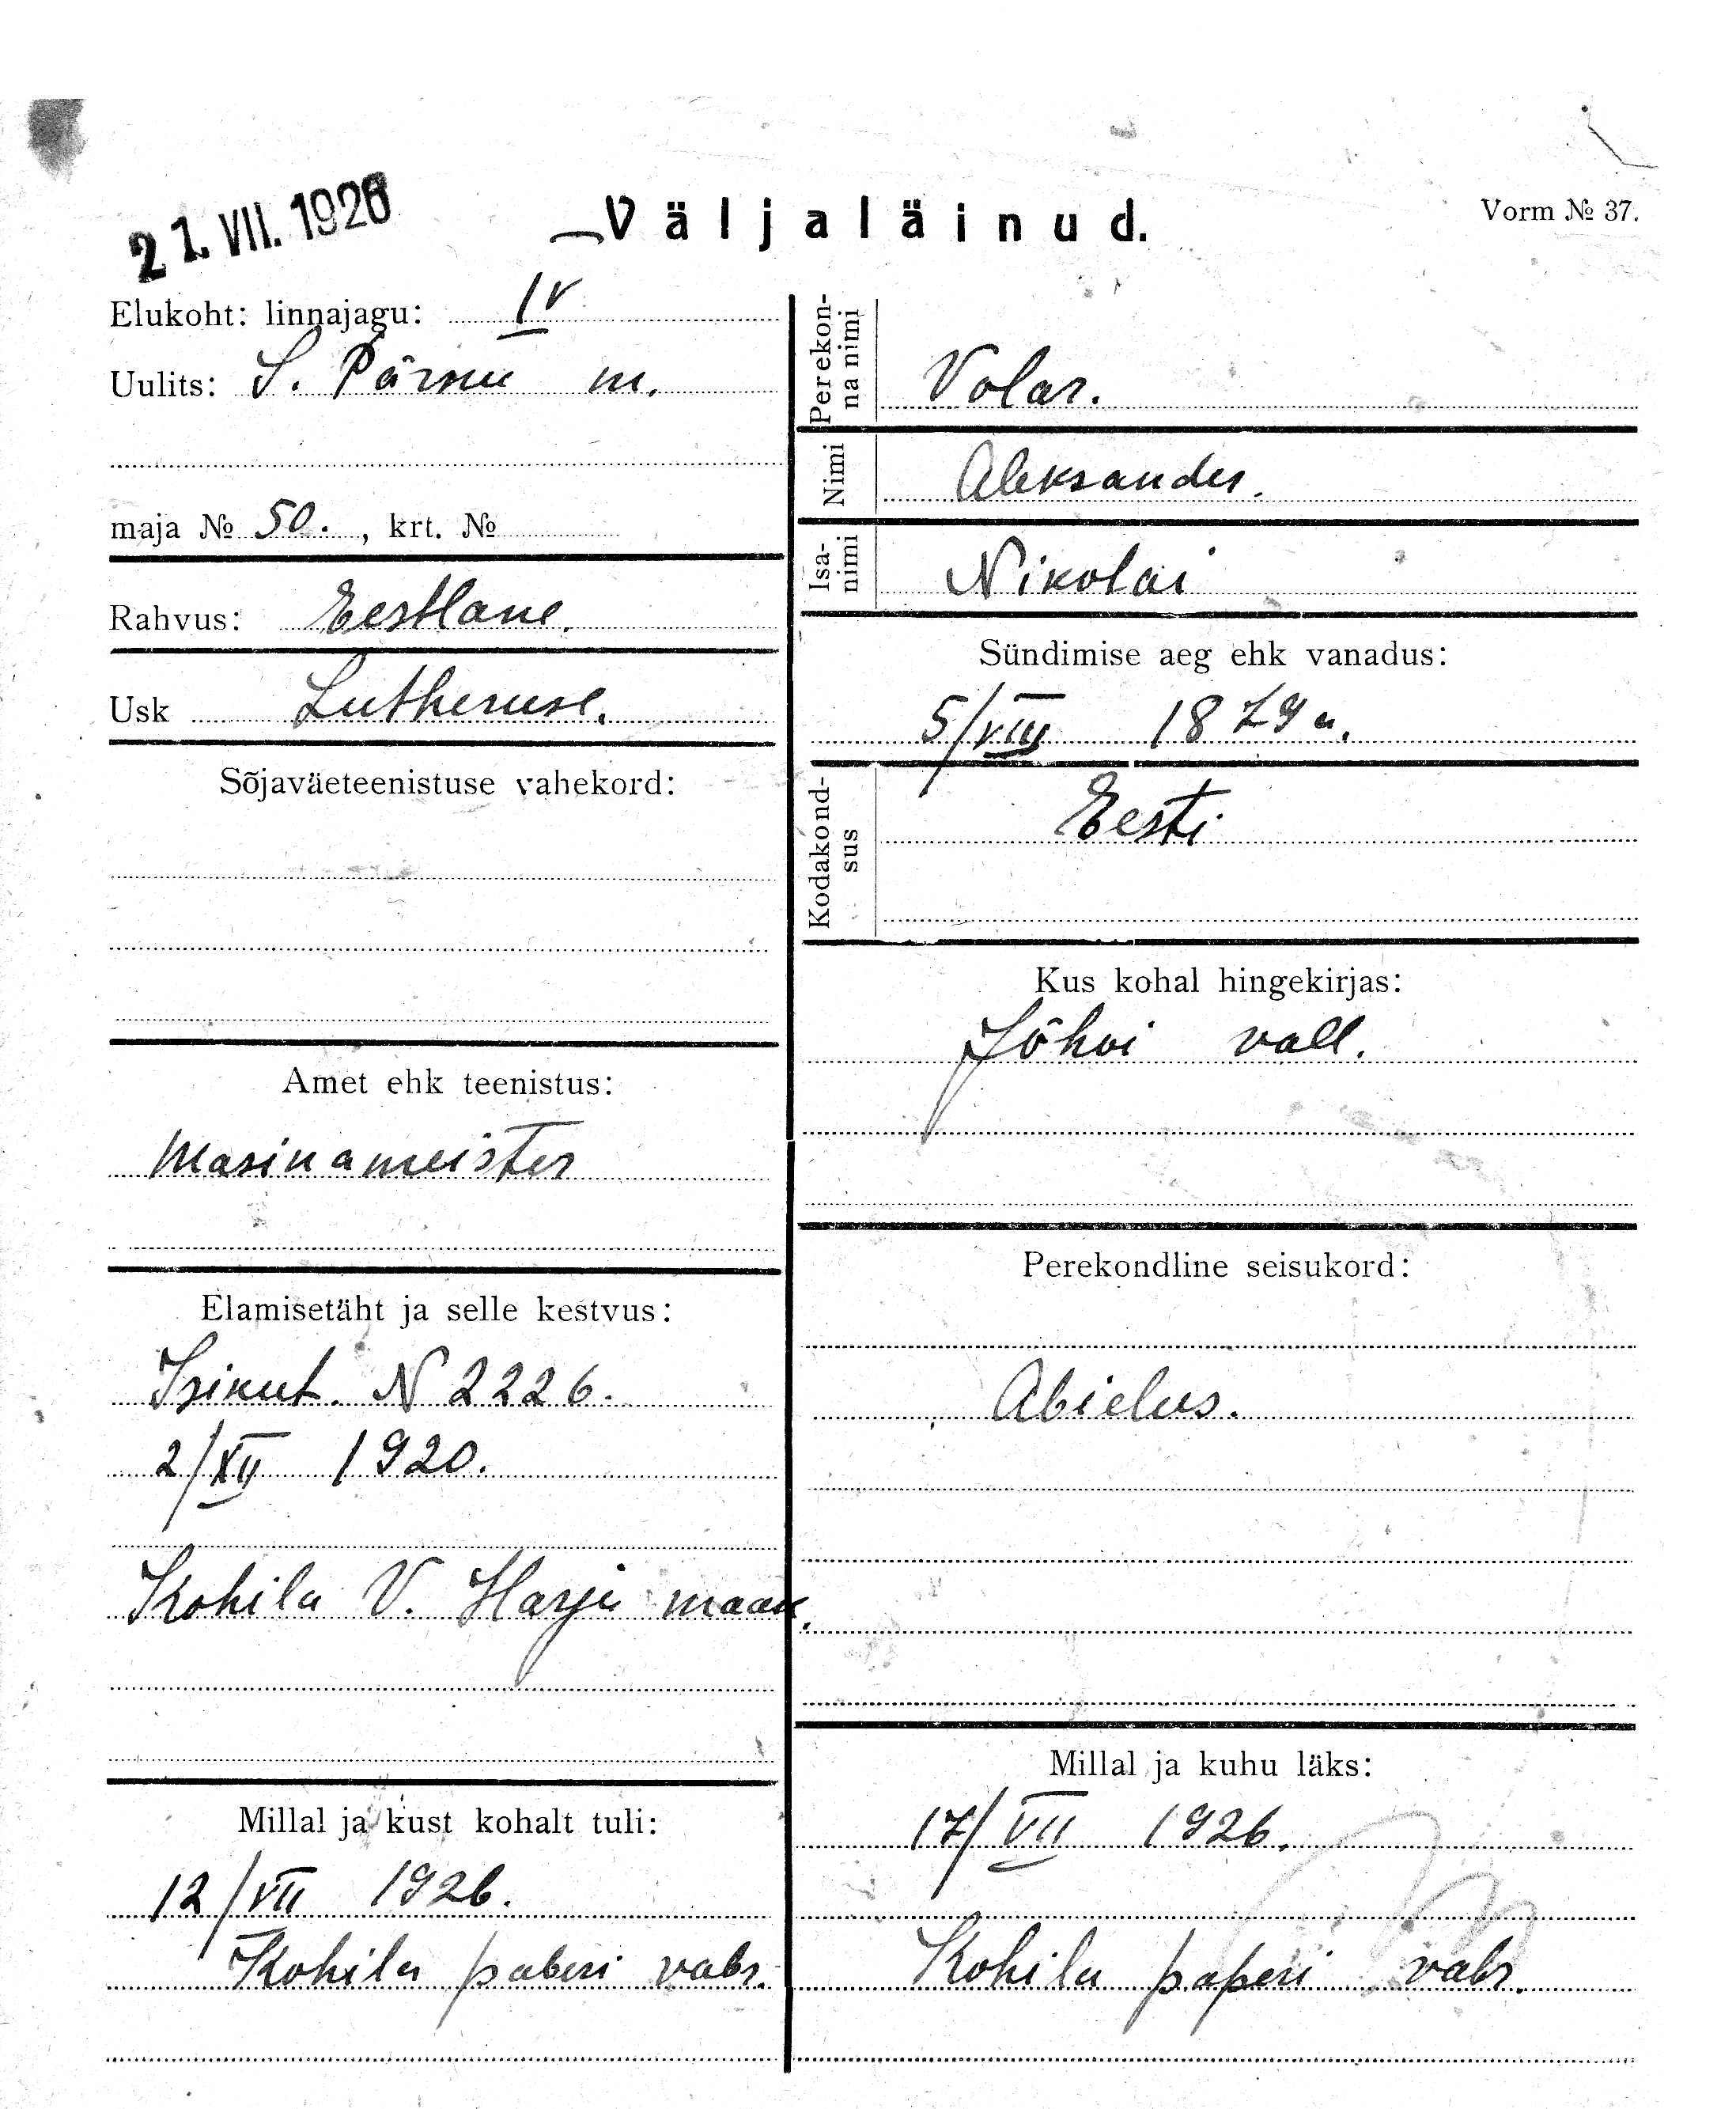 21. VII. 1926
Väljaläinud.
Vorm № 37.
Elukoht: linnajagu: IV
Uulits: S. Pärnu m.
maja № 50. , krt. №
Rahvus: Eestlane.
Usk Lutheruse.
Sõjaväeteenistuse vahekord:
Amet ehk teenistus:
Masinameister
Elamisetäht ja selle kestvus:
Isikut. N 2226.
2/XII 1920.
Kohila V. Harju maak.
Millal ja kust kohalt tuli:
12/VII 1926.
Kohila paberi vabr.
Perekon-
na nimi
Volar.
Nimi
Aleksander.
Isa-
nimi
Nikolai
Sündimise aeg ehk vanadus:
5/VIII 1879 a.
Kodakond-
sus
Eesti
Kus kohal hingekirjas:
Jõhvi vall.
Perekondline seisukord:
Abielus.
Millal ja kuhu läks:
17/VII 1926.
Kohila paperi vabr.